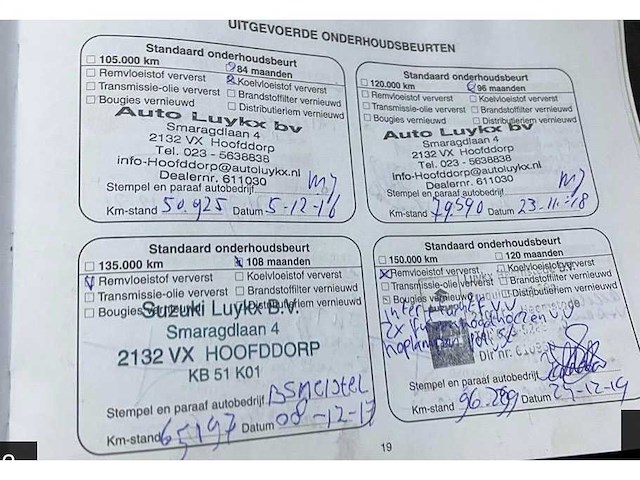 UITGEVOERDE ONDERHOUDSBEURTEN
Standaard onderhoudsbeurt
105.000 km 84 maanden
Remvloeistof ververst Koelvloeistof ververst
Transmissie-olie ververst Brandstoffilter vernieuwd
Bougies vernieuwd Distributieriem vernieuwd
Auto Luykx bv
Smaragdlaan 4
2132 VX Hoofddorp
Tel. 023 - 5638838
info-Hoofddorp@autoluykx.nl
Dealernr. 611030
Stempel en paraaf autobedrijf
Km-stand 50.925 Datum 5-12-16
Standaard onderhoudsbeurt
120.000 km 96 maanden
Remvloeistof ververst Koelvloeistof ververst
Transmissie-olie ververst Brandstoffilter vernieuwd
Bougies vernieuwd Distributieriem vernieuwd
Auto Luykx bv
Smaragdlaan 4
2132 VX Hoofddorp
Tel. 023 - 5638838
info-Hoofddorp@autoluykx.nl
Dealernr. 611030
Stempel en paraaf autobedrijf
Km-stand 79590 Datum 23-11-18
Standaard onderhoudsbeurt
135.000 km 108 maanden
Remvloeistof ververst Koelvloeistof ververst
Transmissie-olie ververst Brandstoffilter vernieuwd
Bougies vernieuwd Distributieriem vernieuwd
Suzuki Luykx B.V.
Smaragdlaan 4
2132 VX HOOFDDORP
KB 51 K01
Stempel en paraaf autobedrijf
Km-stand 65197 Datum 08-12-17
Standaard onderhoudsbeurt
150.000 km 120 maanden
Remvloeistof ververst Koelvloeistof ververst
Transmissie-olie ververst Brandstoffilter vernieuwd
Bougies vernieuwd Distributieriem vernieuwd
2x
Stempel en paraaf autobedrijf
Km-stand 96.289 Datum 25-12-19
19